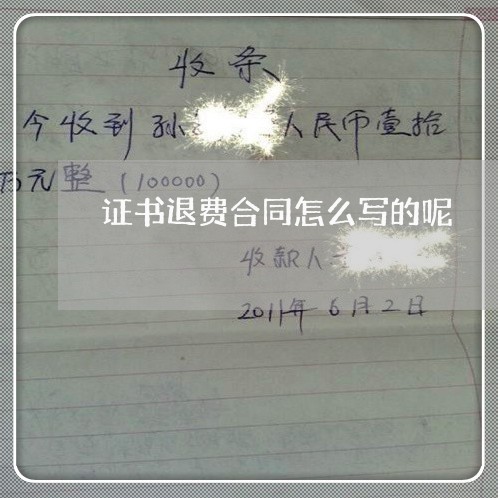 收条
今收到孙 人民币壹拾
万元整(100000)
证书退费合同怎么写的呢
收款人
2011年6月2日